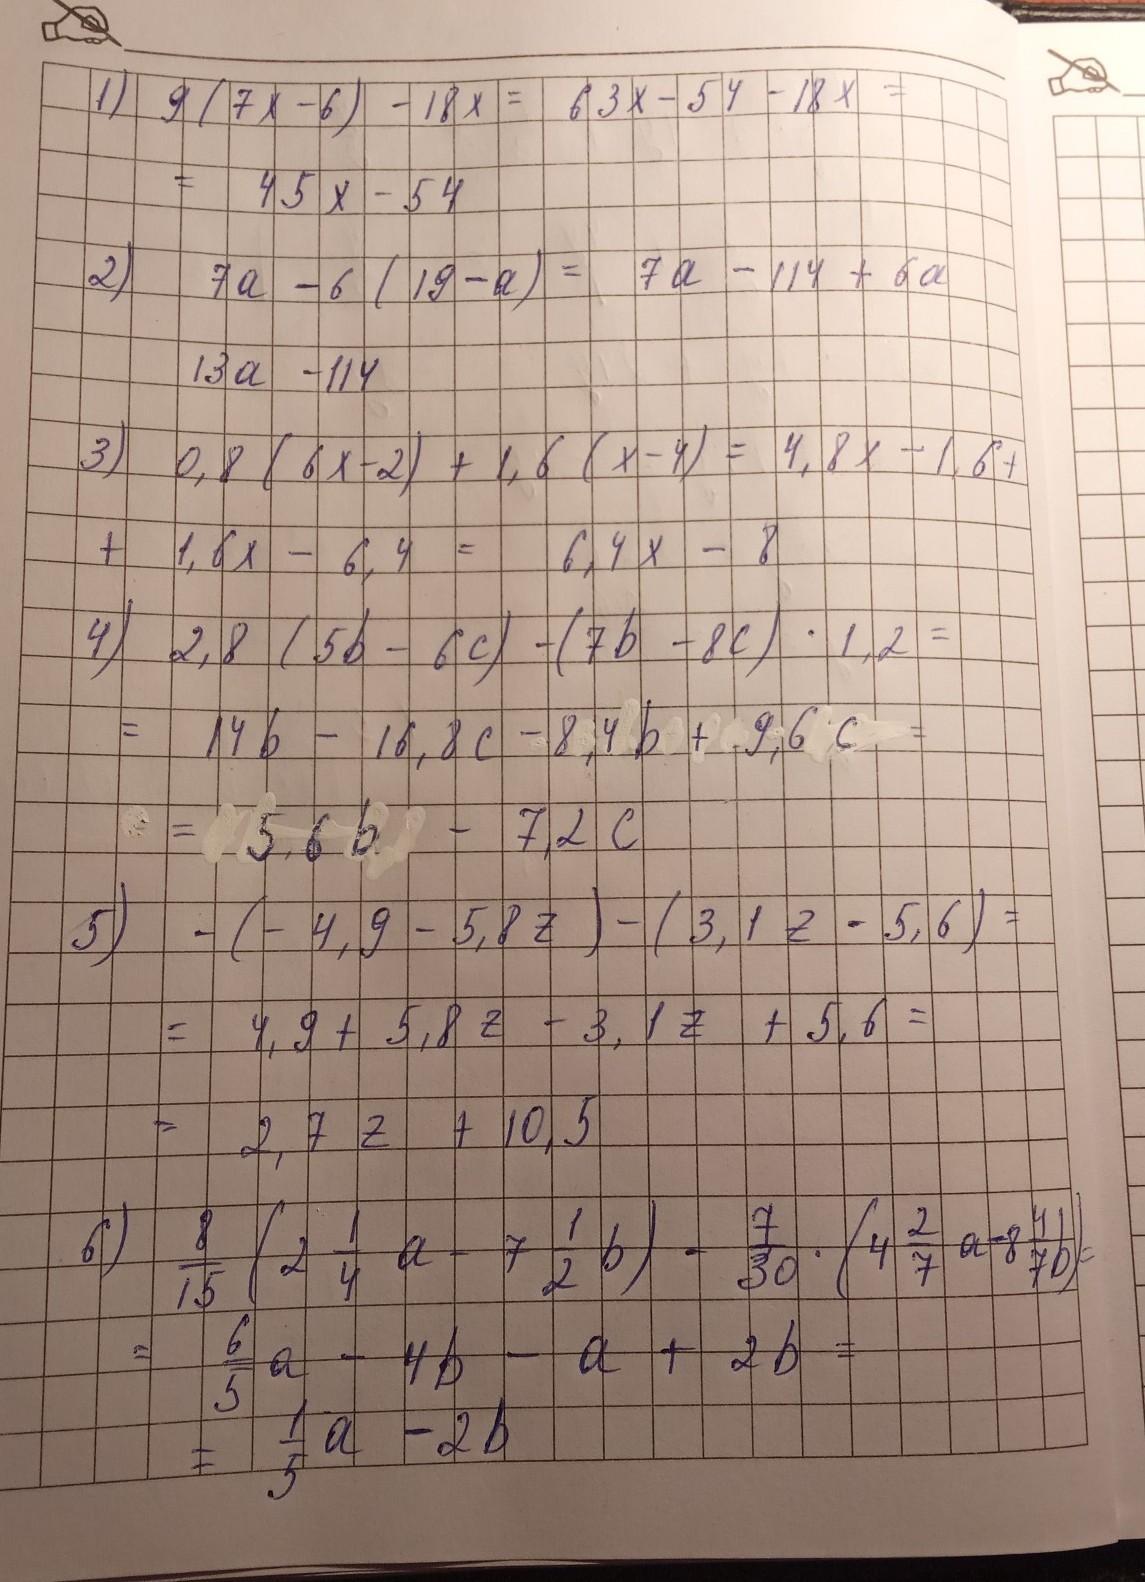 1) 9(7x-6) -18x = 63x-54-18x =
= 45x-54
2) 7a -6(19-a) = 7a -114 + 6a
13a -114
3) 0,8(6x-2) + 1,6(x-4) = 4,8x - 1,6+
+ 1,6x - 6,4 = 6,4x - 8
4) 2,8 (5b - 6c) -(7b -8c) · 1,2 =
= 14b - 16,8c - 8,4b + 9,6c =
= 5,6b - 7,2c
5) -(-4,9 - 5,8z) - (3,1z - 5,6) =
= 4,9 + 5,8z - 3,1z + 5,6 =
= 2,7z + 10,5
6) 8/15 (2 1/4 a - 7 1/2 b) - 7/30 · (4 2/7 a - 8 4/7 b) =
= 6/5 a - 4b - a + 2b =
= 1/5 a - 2b